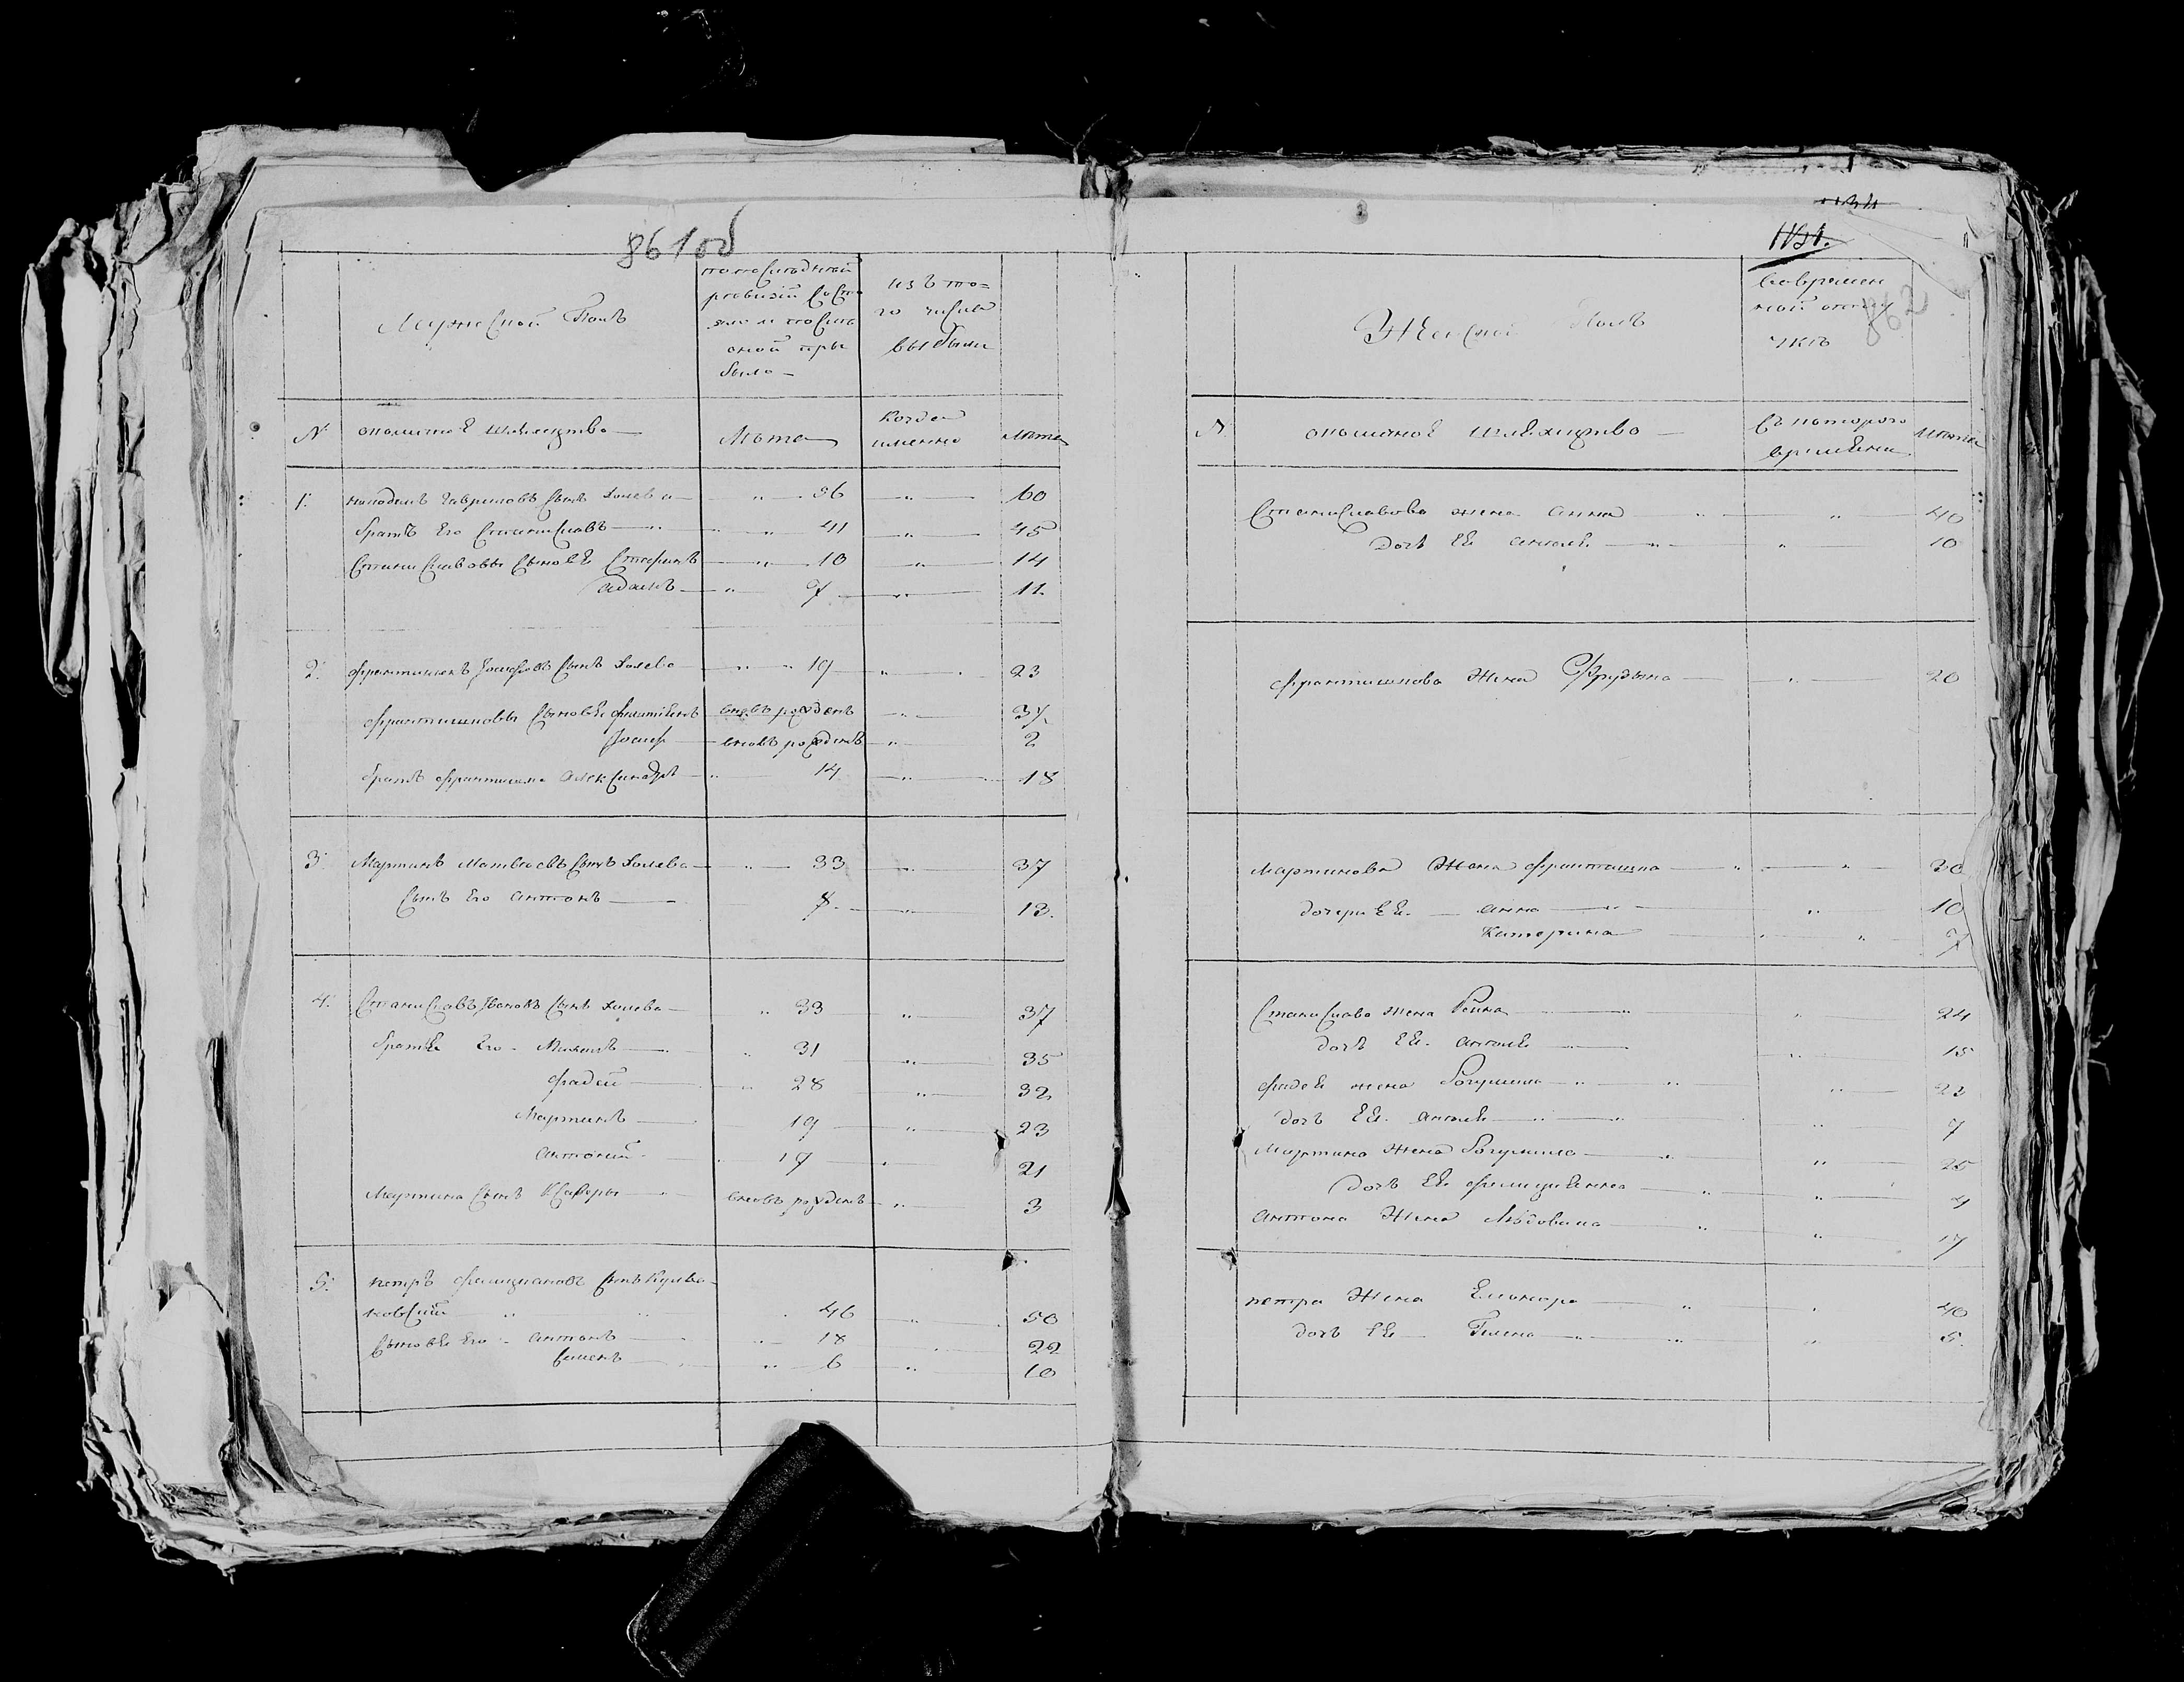 861об
Мужеской Полъ
по последней
ревизии состо
яло и после
оной при
было
изъ то=
го числа
выбыли
№ околичное шляхетство Лѣта когда именно лѣта
1. Гавриловъ сынъ Холева 56 60
братъ Его Станиславъ 41 45
Станиславовы сыновѣ Стефанъ 10 14
адамъ 7 11
2. Франтишекъ Іосифовъ сынъ Холева 19 23
Франтишковы сыновѣ вновь рожденъ
Іосиф вновь рожденъ 2
братъ Франтишка Александръ 14 18
3. Мартинъ Матвѣевъ сынъ Холева 33 37
сынъ Его антонъ 13.
4. Станиславъ Івановъ сынъ Холева 33 37
братья Его Михаилъ 31 35
Фадей 28 32
Мартинъ 19 23
антоний 17 21
Мартина сынъ вновь рожденъ 3
5. петръ Фелициановъ сынъ
46 50
сыновѣ Его антонъ 18 22
6 10
1131.
862
Женской Полъ
во временной отлучкѣ
№ околичное шляхетство съ которого времени лѣта
Станиславова жена анна 40
дочь Ея анеля 10
Франтишкова жена 20
Мартинова Жена Франтишка 30
дочери Ея анна 10
Катерина 7
Станислава жена 24
дочь Ея анеля 15
Фадея жена Богумила 22
дочь Ея анеля 7
Мартина жена Богумила 25
дочь Ея Фелициянна 4
антона Жена Людовика 17
петра Жена 40
дочь Ея 5.